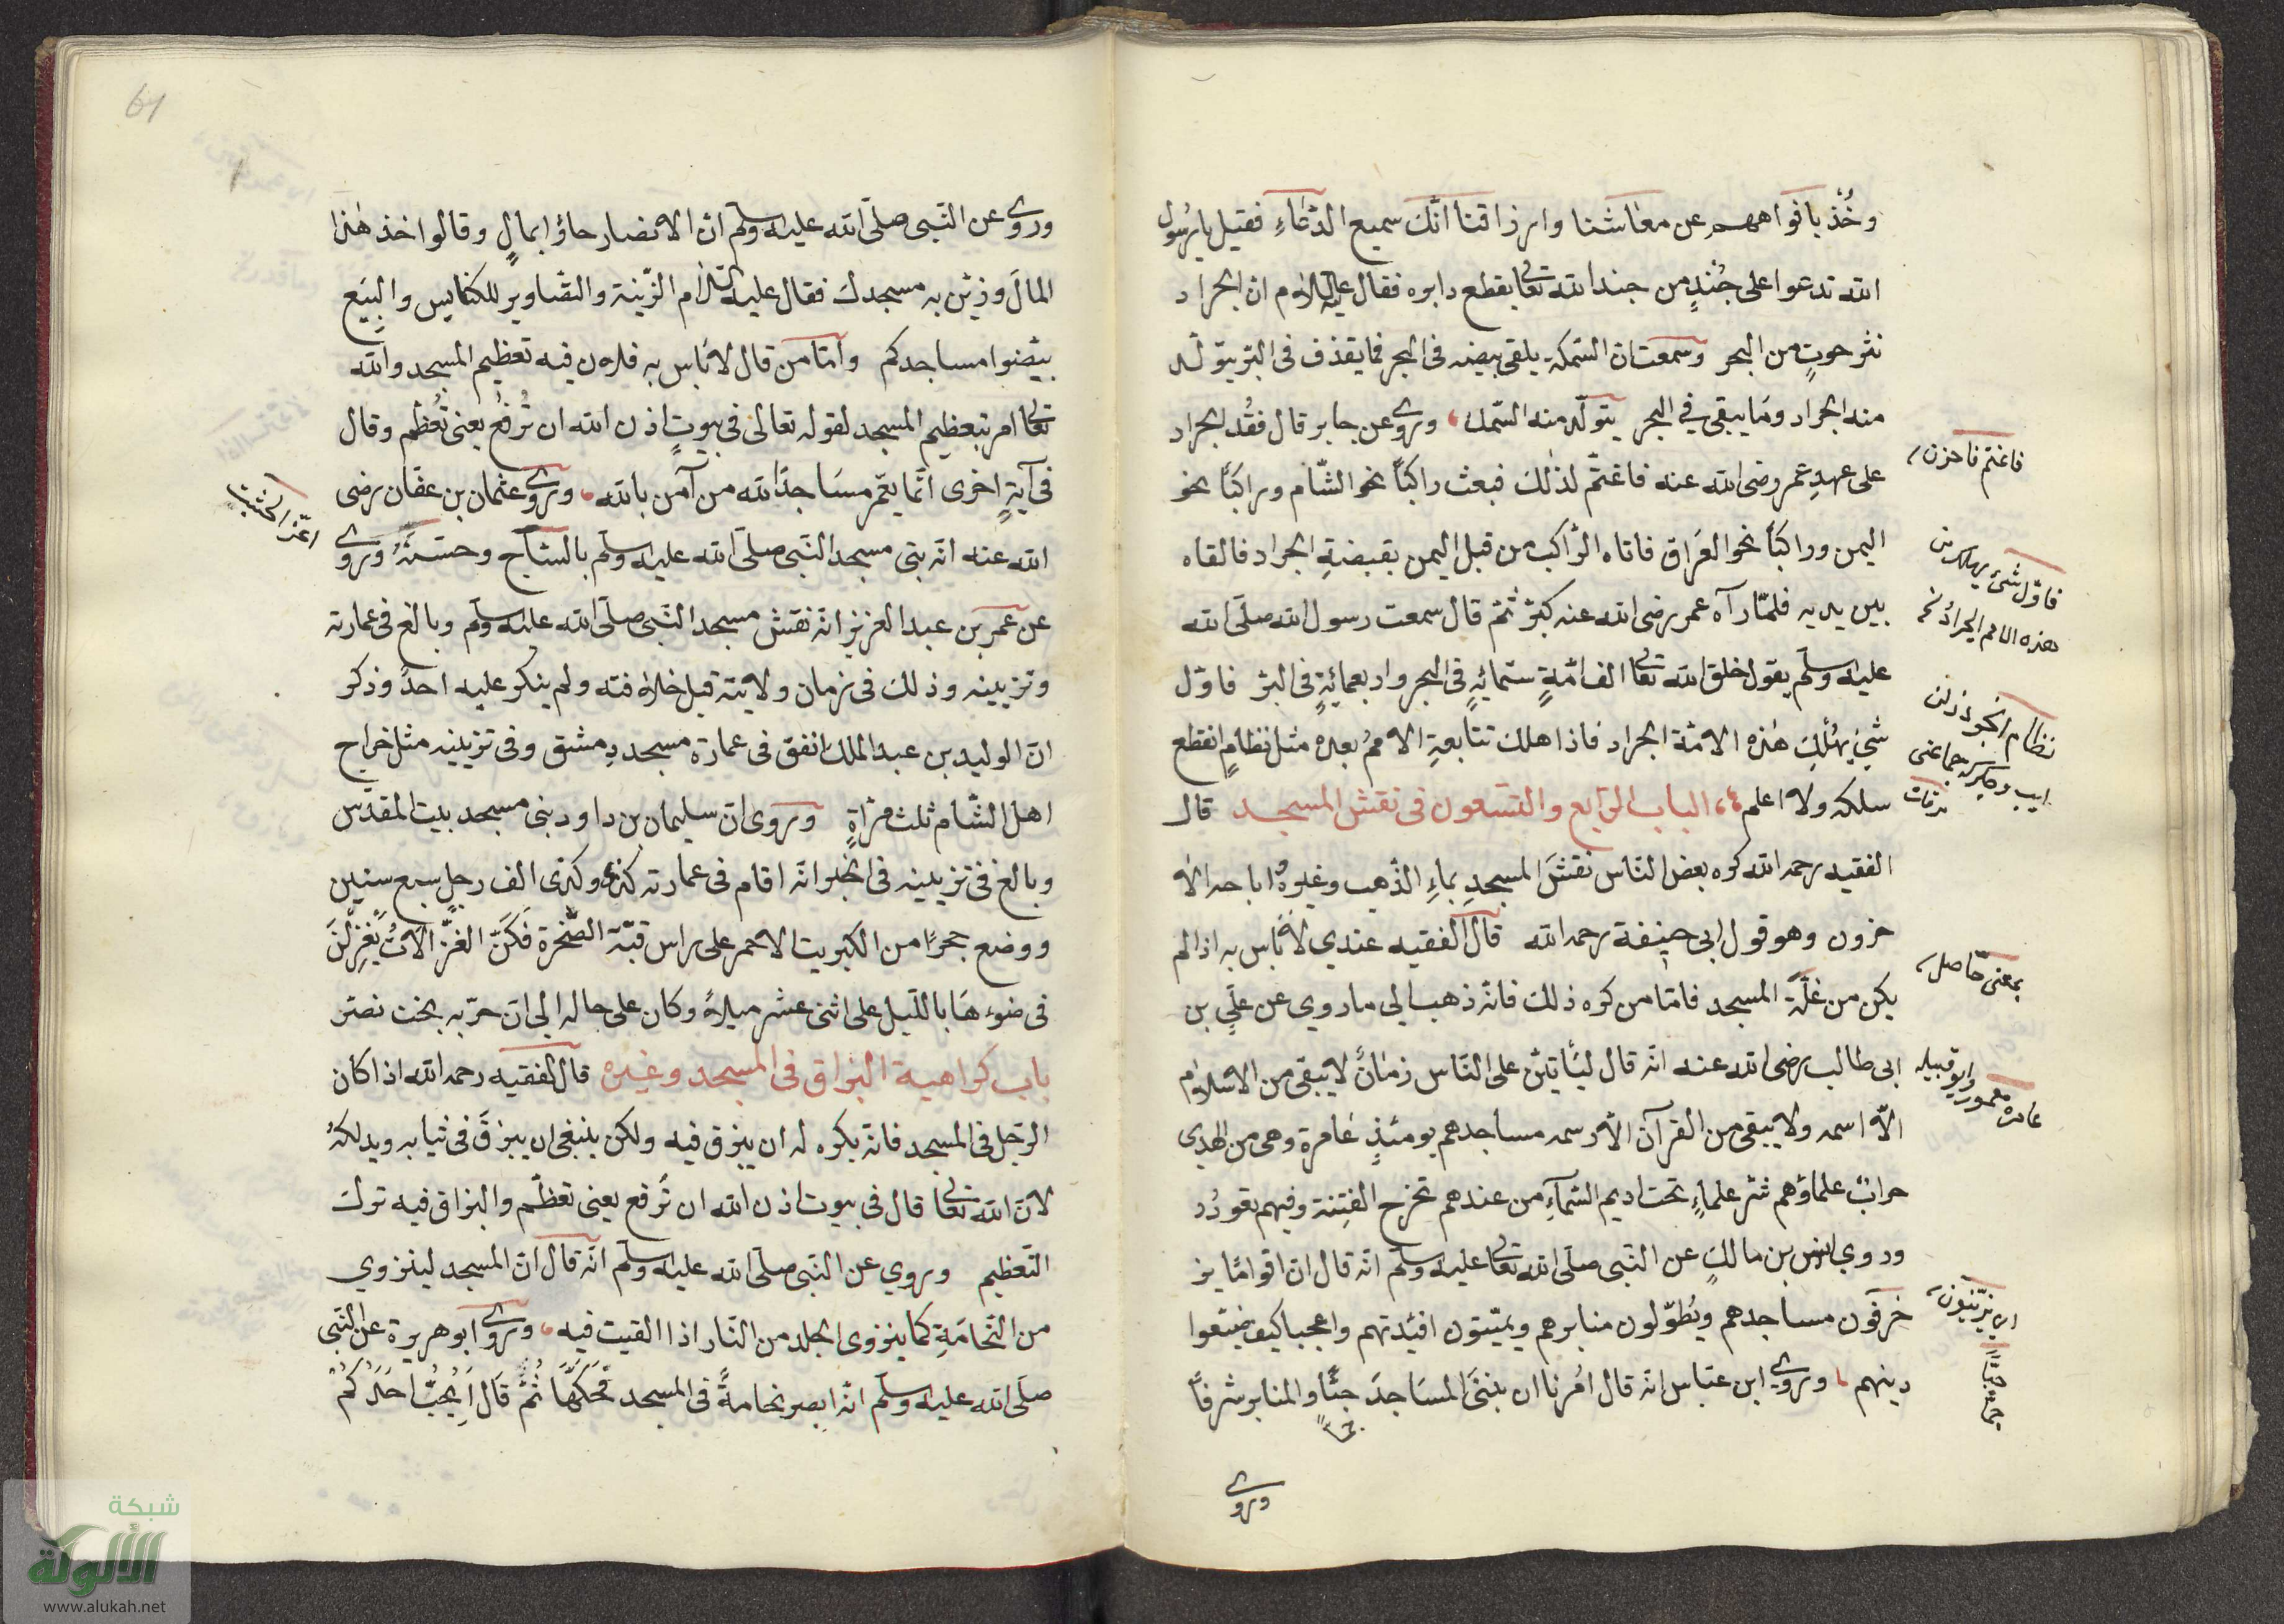 وخُذ بافواههم عن معاشنا وارزاقنا انّك سميع الدّعاءِ فقيل يا رسُول
الله تدعوا على جُندٍ من جند الله تعالى يقطع دابره فقال عليه السلام ان الجراد
نثر حوتٍ من البحر وسمعت ان السّمكة يلقى بيضه فى البحر فما يقذف فى البرّ يتولّد
منه الجراد وما يبقى في البحر يتولّد منه السّمك، وروى عن جابر قال فقُد الجراد
على عهدِ عمر رضى الله عنه فاغتمّ لذٰلك فبعث راكبًا نحو الشّام وراكبًا نحو
اليمن وراكبًا نحو العراق فاتاه الرّاكب من قبل اليمن بقبضةِ الجراد فالقاه
بين يديه فلمّا رآه عمر رضى الله عنه كبّر ثمّ قال سمعت رسول الله صلّى الله
عليه وسلّم يقول خلق الله تعالى الف امّةٍ ستّمائةٍ فى البحر واربعمائةٍ فى البرّ فاوّل
شئٍ يهُلك هٰذه الامّة الجراد فاذا هلك تتابعةِ الاممُ بعده مثل نظامٍ انقطع
سلكه ولا اعلم، الباب الرّابع والتّسعون فى نقش المسجد قال
الفقيه رحمه الله كره بعض النّاس نقشَ المسجدِ بماءِ الذّهب وغيرهُ اباحه الآ
خرون وهو قول ابى حنيفة رحمه الله قال الفقيه عندي لا بأس به اذا لم
يكن من غلّة المسجد فامّا من كره ذلك فانّه ذهب الى ما روي عن علي بن
ابى طالب رضى الله عنه انّه قال ليَأتينّ على النّاس زمانٌ لا يبقى من الاسلام
الّا اسمه ولا يبقى من القرآن الّا رسمه مساجدهم يومئذٍ عامرة وهى من الهدى
خرابٌ علماؤهم شرّ علماءِ تحت اديم السّمآءِ من عندهم تخرج الفِتنة وفيهم تعودُ
وروي انس بن مالكٍ عن النّبى صلّى الله تعالى عليه وسلّم انّه قال ان اقوامًا يز
خرفون مساجدهم ويُطوّلون منابرهم ويميّتون افئدتهم واعجبا كيف ضيّعوا
دينهم، وروى ابن عبّاس انّه قال اُمرنا ان نبنىَ المسَاجدَ جمًّا والمنابر شرفاً
وروى
فاغتم فاحزن
فاوّل شئ يهلك من
هذه الامم الجرادُ
نظام انجو
بمعنى حاصل
عامرة معمور
اى يزيّنون
64
وروى عن النّبى صلّى الله عليه وسلّم انّ الانصار جاؤا بمالٍ وقالوا خذ هٰذا
المالَ وزيّن به مسجدك فقال عليه السّلام الزّينة والتّصاوير للكنايس والبِيَع
بيّضوا مساجدكم وامّا من قال لا بأس به فلانّ فيه تعظيم المسجد والله
تعالى امر بتعظيم المسجد لقوله تعالى فى بيوتٍ اذن الله ان تُرفعُ يعنى تُعُظم وقال
فى آيةٍ اخرى انّما يعمّر مسَاجدَ الله من آمن بالله، وروى عثمان بن عفّان رضى
الله عنه انّه بنى مسجد النّبى صلّى الله عليه وسلّم بالسّاج وحسّنهُ وروى
عن عمر بن عبد العزيز انّه نقش مسجد النّبى صلّى الله عليه وسلّم وبالغ فى عمارته
وتزيينه وذلك فى زمان ولايته قبل خلافته ولم ينكر عليه احدٌ وذكر
انّ الوليد بن عبد الملك انفق فى عمارة مسجد دِمشق وفى تزيينه مثل خراج
اهل الشّام ثلث مرّاةٍ وروى انّ سليمان بن داود بنى مسجد بيت المقدّس
وبالغ فى تزيينه فى الخبر انّه اقام فى عمارته كذى وكذى الف رجلٍ سبع سنين
ووضع حجرًا من الكبريت الاحمر على راس قبّة الصّخرة فكنّ الغزّالاتُ يَغزِلْنَ
فى ضوءهَا باللّيل على اثنى عشر ميلاً وكان على حاله الى ان خرّبه بخت نصّر
باب كراهية البزاق فى المسجد وغيره قال الفقيه رحمه الله اذا كان
الرّجل فى المسجد فانّه يكره له ان يبزق فيه ولكن ينبغى ان يبزقَ فى ثيابه ويدلكهُ
لانّ الله تعالى قال فى بيوت اذن الله ان تُرفع يعنى تعظّم والبزاق فيه ترك
التّعظيم وروي عن النّبى صلّى الله عليه وسلّم انّه قال انّ المسجد لينزوي
من النّخامَةِ كما ينزوى الجلد من النّار اذا القيت فيه، وروى ابو هريرة عن النّبى
صلّى الله عليه وسلّم انّه ابصر نخامةً فى المسجد فحَكّهَا ثُمَّ قَالَ اَيُحِبُّ احَدُكُمْ
شبكة
الألوكة
www.alukah.net